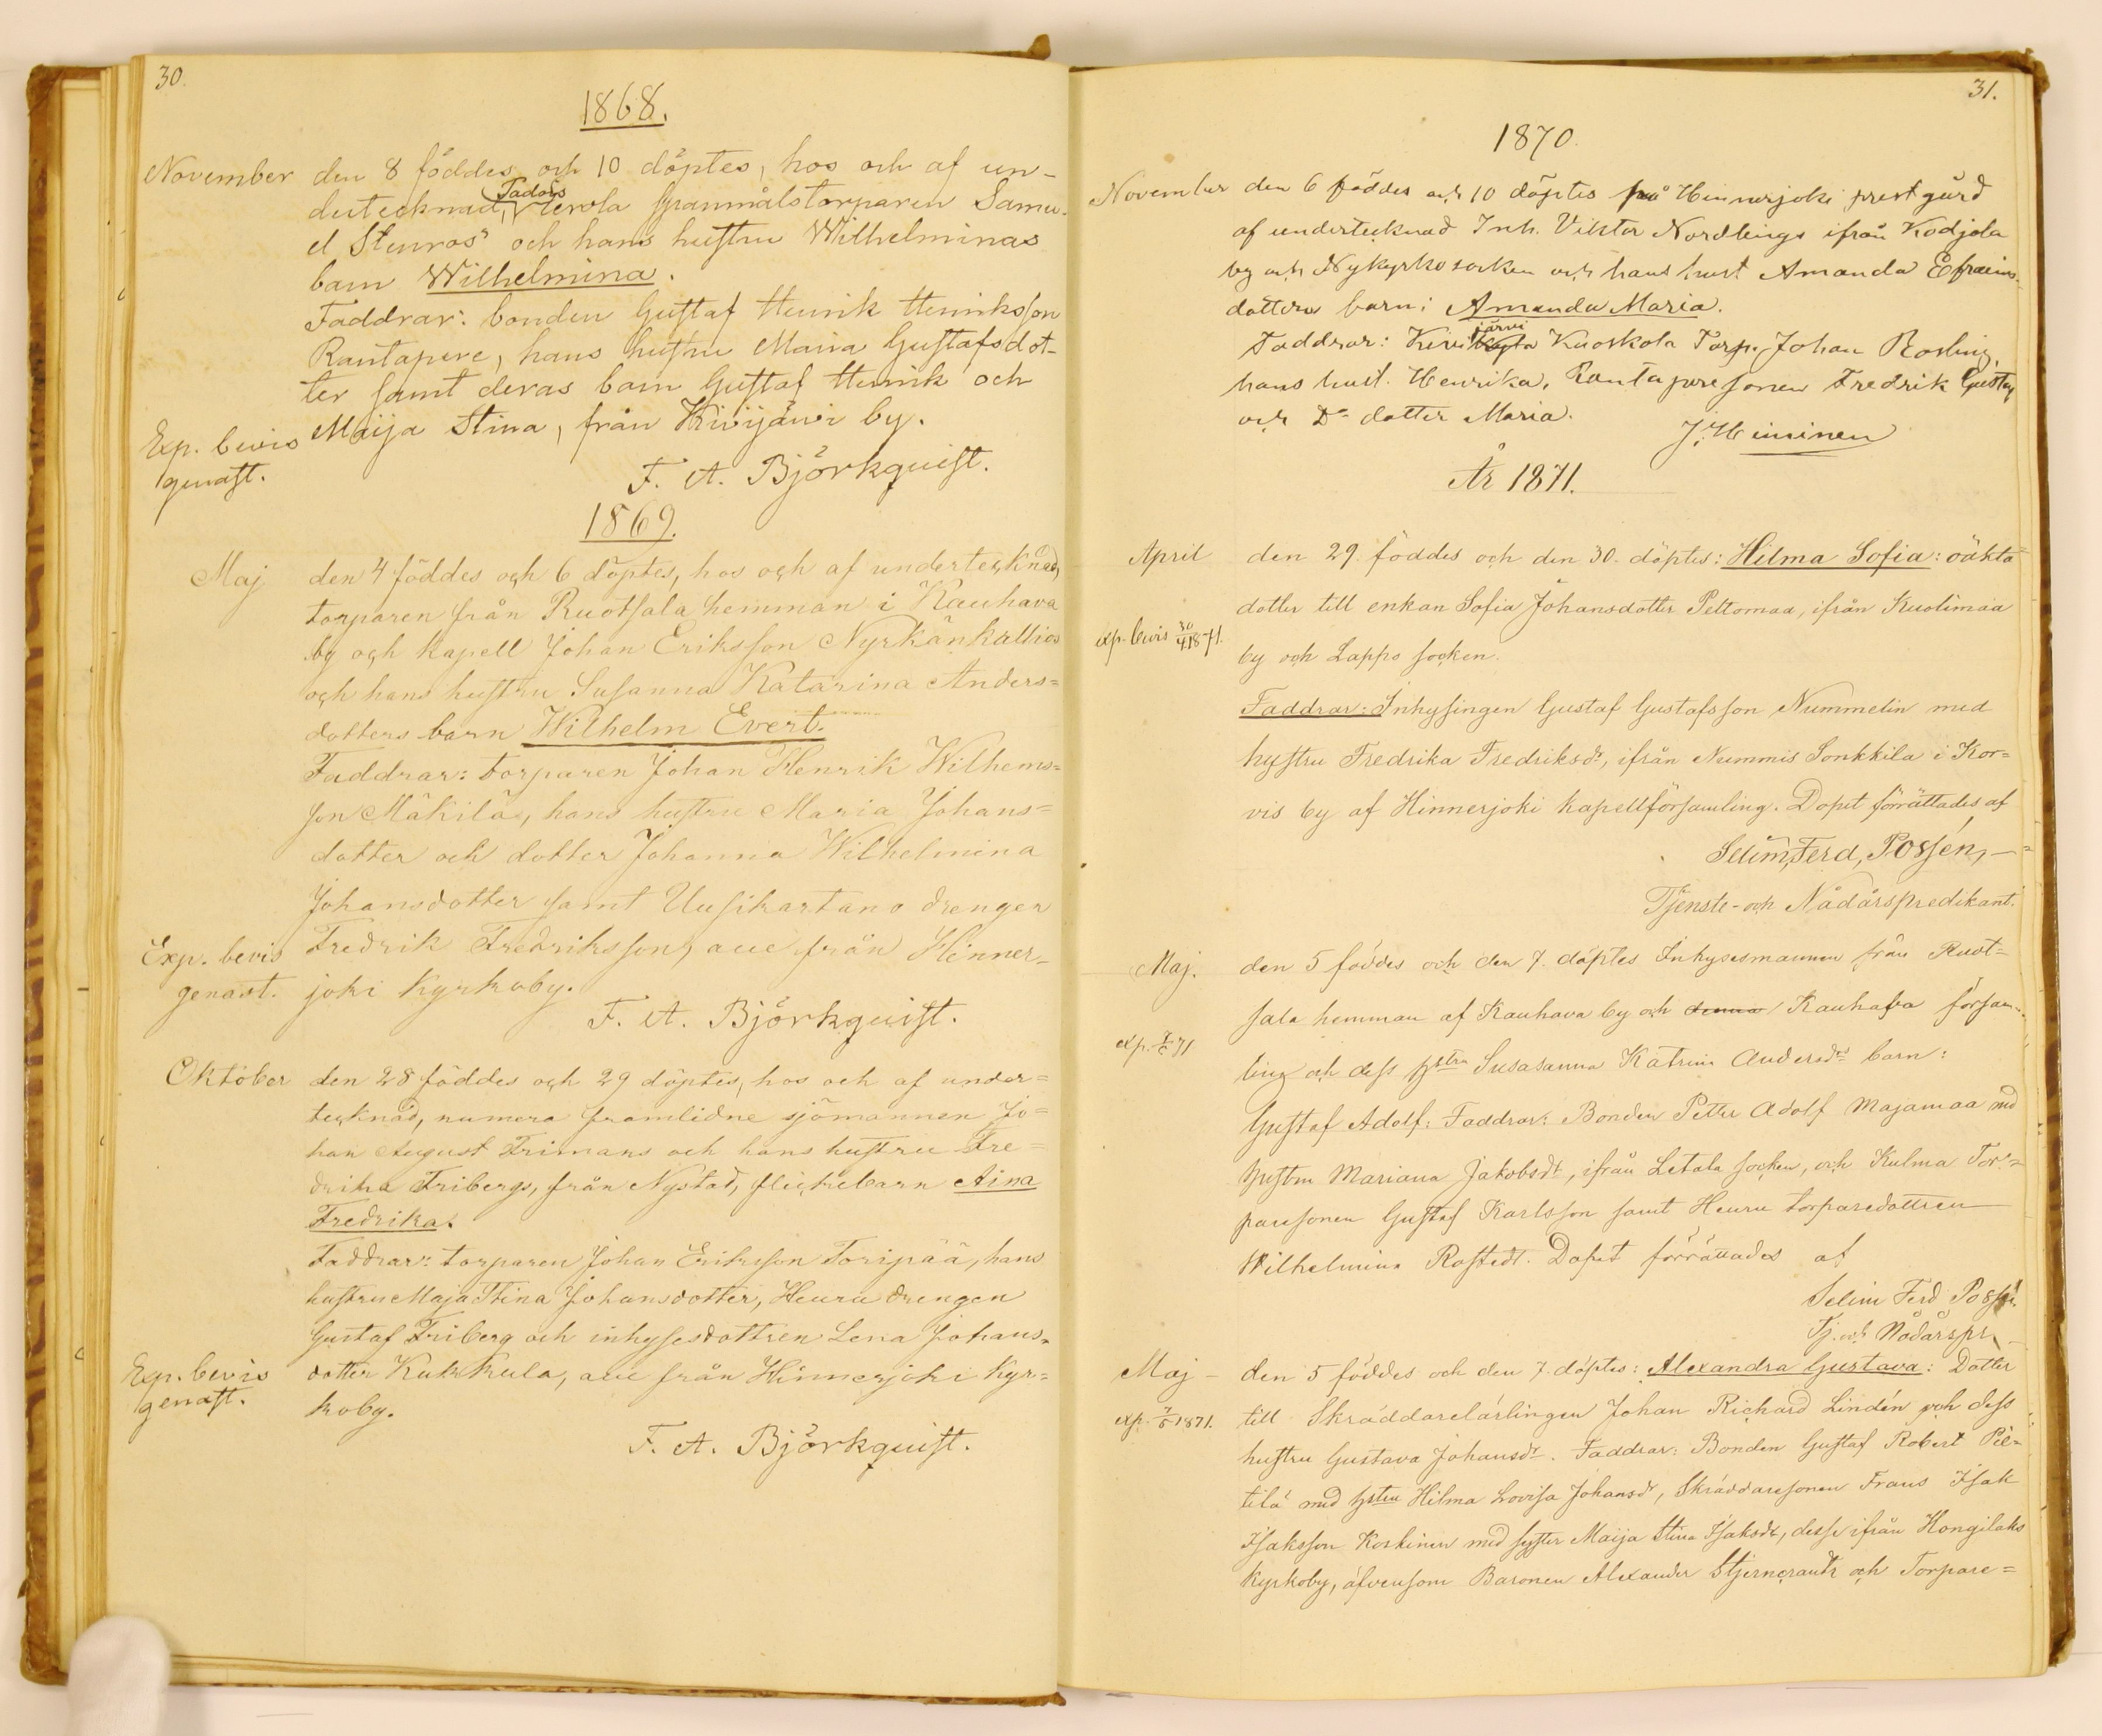 30.
1868.
November den 8 föddes och 10 döptes, hos och af un-
dertecknad, Tadois Uerola Granmålstorparen Samu-
el Stenros' och hans hustru Wilhelminas
barn Wilhelmina.
Faddrar: bonden Gustaf Henrik Henriksson
Rantapere, hans hustru Maria Gustafsdot-
ter samt deras barn Gustaf Henrik och
Maija Stina, från Kivijärvi by.
Exp. bevis
genast.
F. A. Björkquist.
1869.
Maj den 4 föddes och 6 döptes, hos och af undertecknad,
torparen från Ruotsala hemman i Kauhava
by och kapell Johan Eriksson Nyrkänkallios
och hans hustru Susanna Katarina Anders=
dotters barn Wilhelm Evert.
Faddrar: torparen Johan Henrik Wilhems=
son Mäkilä, hans hustru Maria Johans=
dotter och dotter Johanna Wilhelmina
Johansdotter samt Uusikartano drengen
Fredrik Fredriksson, alle från Hinner-
joki Kyrkoby.
Exp. bevis
genast.
F. A. Björkquist.
Oktober den 28 föddes och 29 döptes, hos och af under=
tecknad, numera framlidne sjömannen Jo=
han August Frimans och hans hustru Fre=
drika Fribergs, från Nystad, flickebarn Aina
Fredrika.
Faddrar: torparen Johan Eriksson Toripää, hans
hustru Maja Stina Johansdotter, Heuru drengen
Gustaf Friberg och inhysesdottren Lena Johans=
dotter Kukkula, alle från Hinnerjoki Kyr=
koby.
Exp. bevis
genast.
F. A. Björkquist.
31.
1870.
November den 6 föddes och 10 döptes på Hinnerjoki prestgård
af undertecknad Inh. Viktor Nordlings ifrån Kodjala
by och Nykyrko socken och hans hust Amanda Efraims-
dotters barn: Amanda Maria.
Faddrar: Kivijärvi Kuoskola Torp. Johan Rosling,
hans hust. Henrika, Rantapere sonen Fredrik Gustaf
och Do dotter Maria.
J. Heininen
År 1871.
April den 29. föddes och den 30. döptes: Hilma Sofia: oäkta
dotter till enkan Sofia Johansdotter Peltomaa, ifrån Kuolimaa
by och Lappo socken.
exp. bevis 30/4 1871.
Faddrar: Inhysingen Gustaf Gustafsson Nummelin med
hustru Fredrika Fredriksdr, ifrån Nummis Sonkkila i Kor=
vis by af Hinnerjoki kapellförsamling. Dopet förrättades af
Selim, Ferd, Possén, —
Tjenste- och Nådårspredikant.
Maj. den 5 föddes och den 7. döptes Inhysesmannen från Ruot=
sala hemman af Kauhava by och denna Kauhava försam-
exp. 7/5 71
ling och dess hstru Susasanna Katrina Andersdrs barn:
Gustaf Adolf: Faddrar: Bonden Petter Adolf Majamaa med
hustru Mariana Jakobsdt, ifrån Letala socken, och Kulma Tor=
paresonen Gustaf Karlsson samt Heuru torparedottren
Wilhelmina Rostedt. Dopet förrättades af
Selim Ferd Possén.
Tj. och Nådårspr.
Maj – den 5 föddes och den 7. döptes: Alexandra Gustava: Dotter
exp. 7/5 1871. till Skräddarelärlingen Johan Richard Lindén och dess
hustru Gustava Johansdr. Faddrar: Bonden Gustaf Robert Pil-
tilä med hstru Hilma Lovisa Johansdr, Skräddaresonen Frans Isak
Isaksson Koskinen med syster Maija Stina Isaksdr, desse ifrån Hongilaks
kyrkoby, äfvensom Baronen Alexander Stjerncrantz och Torpare=